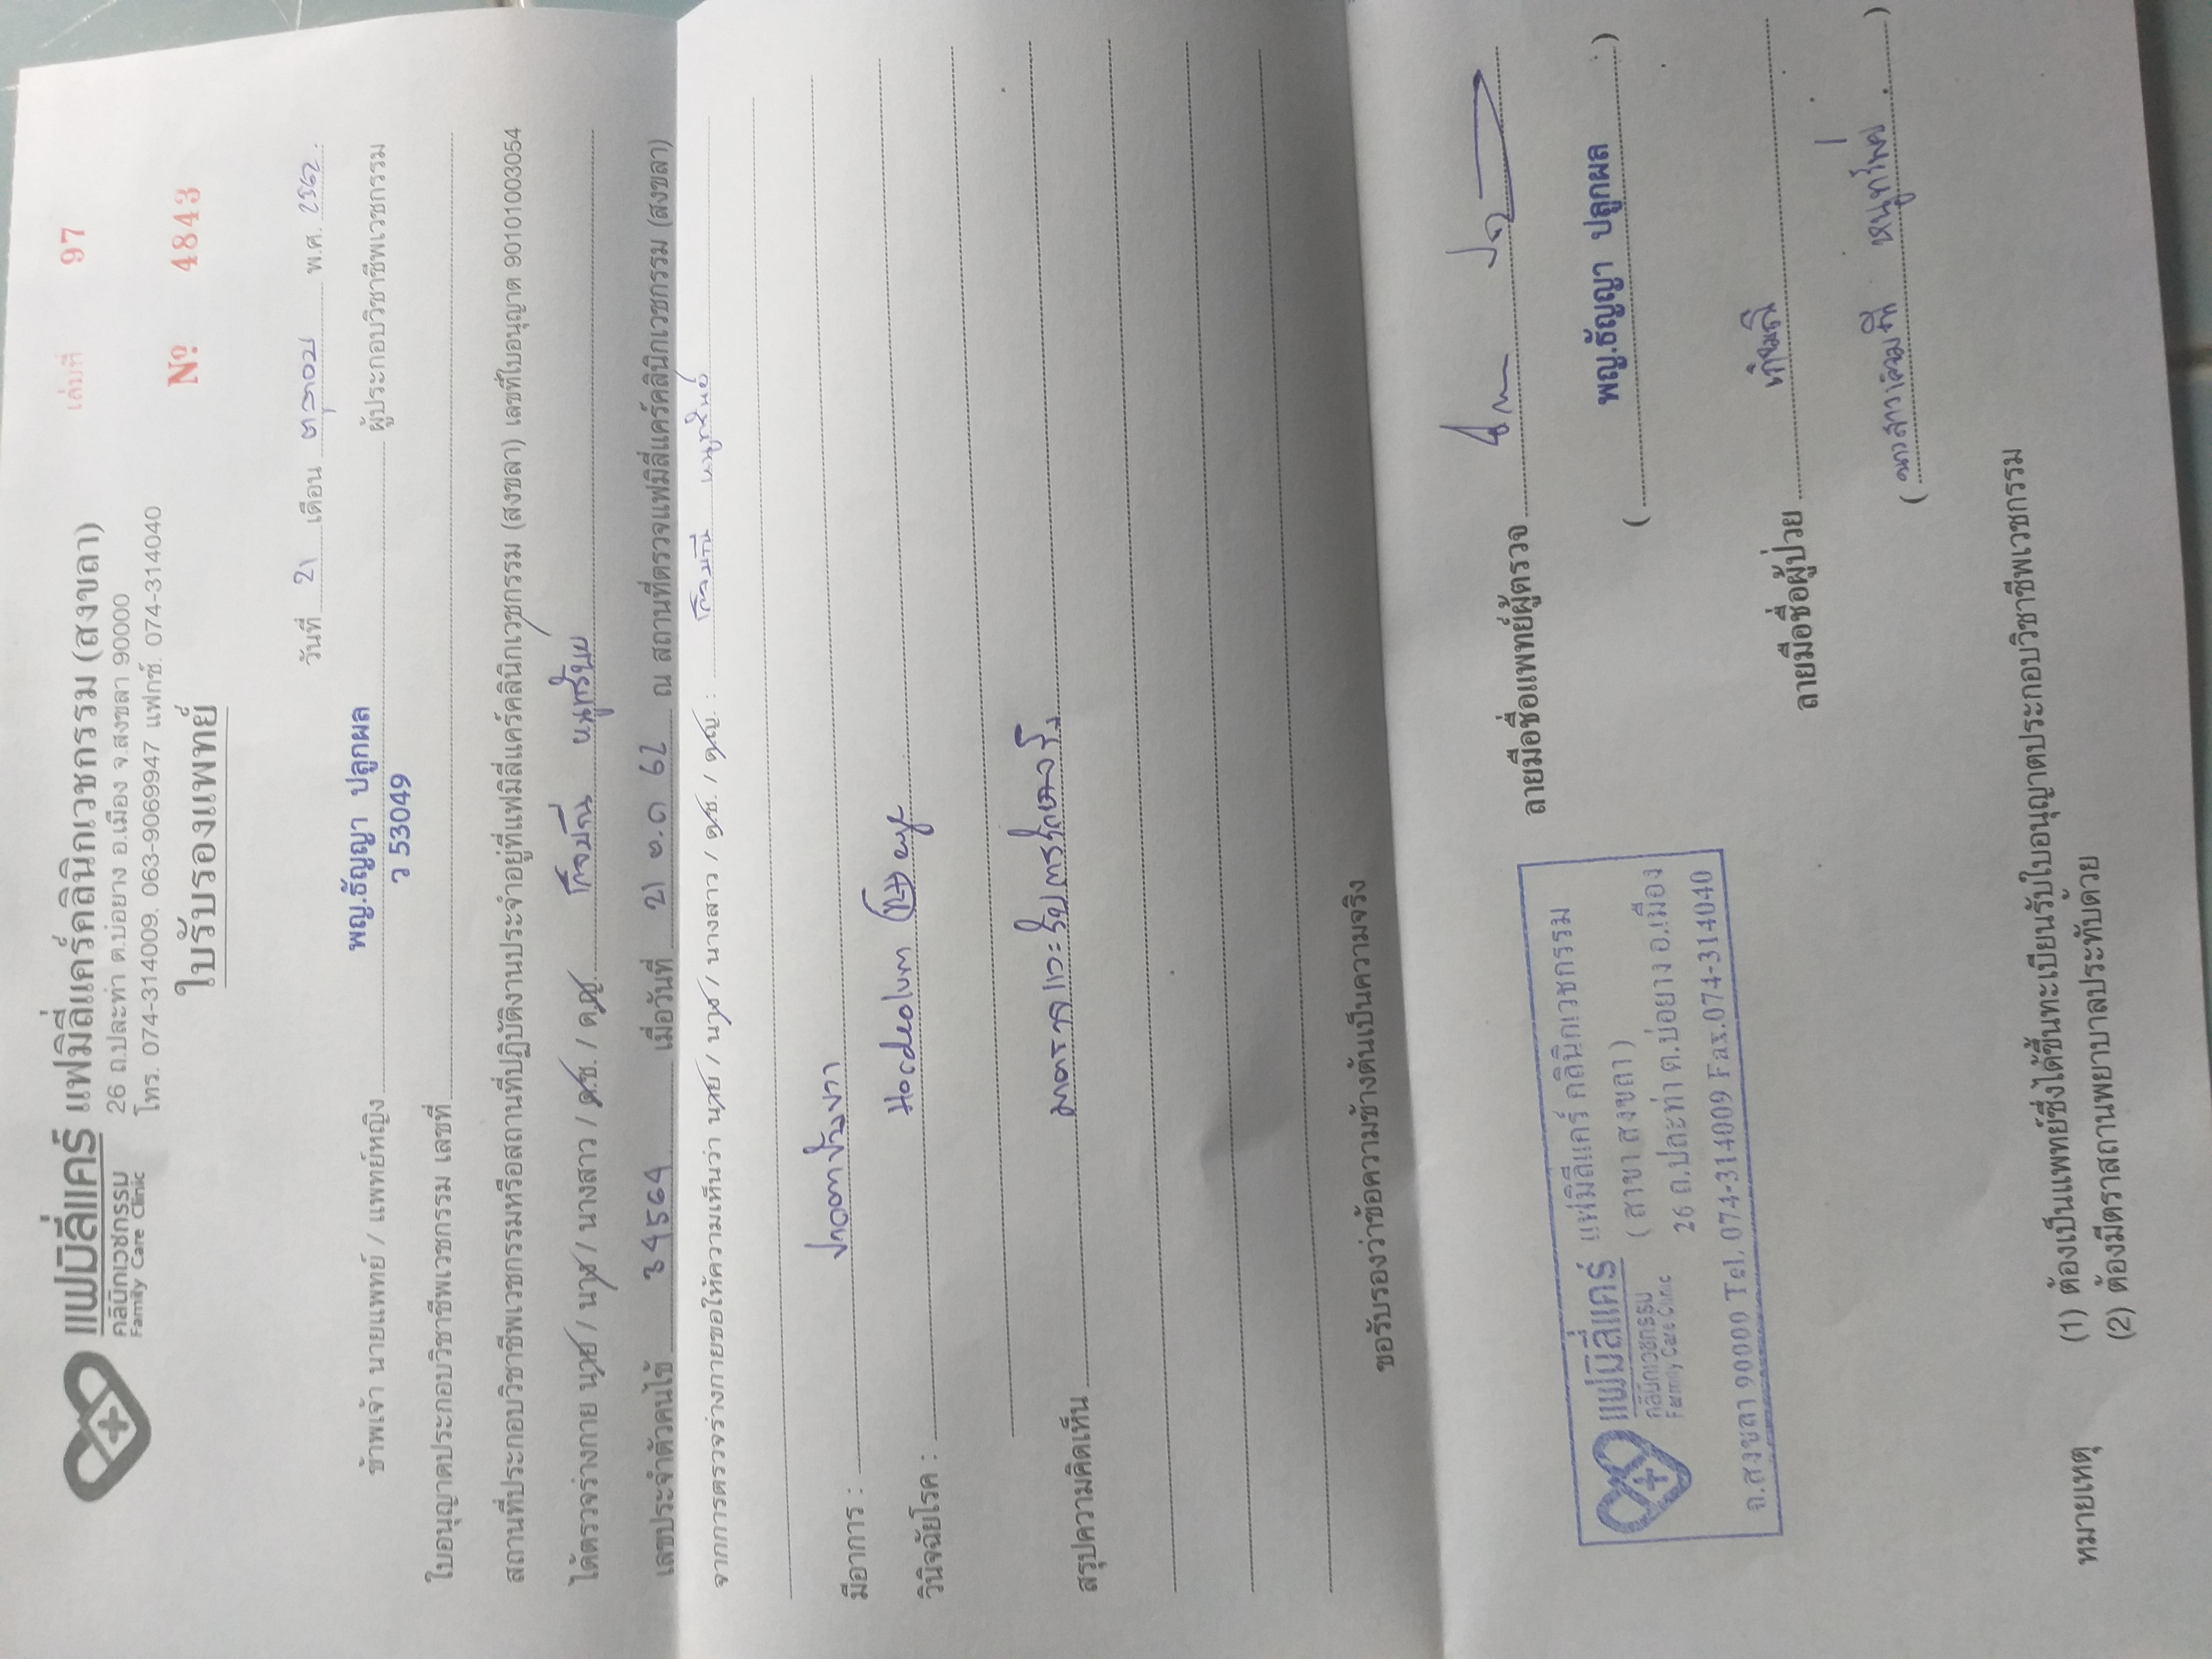 แฟมิลี่แคร์
คลินิกเวชกรรม
Family Care Clinic
แฟมิลี่แคร์คลินิกเวชกรรม (สงขลา)
26 ถ.ปละท่า ต.บ่อยาง อ.เมือง จ.สงขลา 90000
โทร. 074-314009, 063-9069947 แฟกซ์. 074-314040
เล่มที่ 97
Nº 4843
ใบรับรองแพทย์
วันที่ 21 เดือน ตุลาคม พ.ศ. 2562.
ข้าพเจ้า นายแพทย์ / แพทย์หญิง พญ.ธัญญา ปลูกผล ผู้ประกอบวิชาชีพเวชกรรม
ว 53049
ใบอนุญาตประกอบวิชาชีพเวชกรรม เลขที่
สถานที่ประกอบวิชาชีพเวชกรรมหรือสถานที่ปฏิบัติงานประจำอยู่ที่แฟมิลี่แคร์คลินิกเวชกรรม (สงขลา) เลขที่ใบอนุญาต 90101003054
ได้ตรวจร่างกาย นาย / นาง / นางสาว / ด.ช. / ด.ญ. หนูทรัพย์
เลขประจำตัวคนไข้ 34564 เมื่อวันที่ 21 ต.ค 62 ณ สถานที่ตรวจแฟมิลี่แคร์คลินิกเวชกรรม (สงขลา)
จากการตรวจร่างกายขอให้ความเห็นว่า นาย / นาง / นางสาว / ด.ช. / ด.ญ. : หนูทรัพย์
มีอาการ : ปวดตาข้างขวา
วินิจฉัยโรค : Hordeolum Rt eye
สรุปความคิดเห็น มาตรวจและรับการรักษาจริง
ขอรับรองว่าข้อความข้างต้นเป็นความจริง
ลายมือชื่อแพทย์ผู้ตรวจ
( พญ.ธัญญา ปลูกผล )
แฟมิลี่แคร์
คลินิกเวชกรรม
Farmily Care Clinic
แฟมิลี่แคร์ คลินิกเวชกรรม
( สาขา สงขลา )
26 ถ.ปละท่า ต.บ่อยาง อ.เมือง
จ.สงขลา 90000 Tel. 074-314009 Fax.074-314040
ลายมือชื่อผู้ป่วย
( นางสาว หนูทรัพย์ )
หมายเหตุ (1) ต้องเป็นแพทย์ซึ่งได้ขึ้นทะเบียนรับใบอนุญาตประกอบวิชาชีพเวชกรรม
(2) ต้องมีตราสถานพยาบาลประทับด้วย